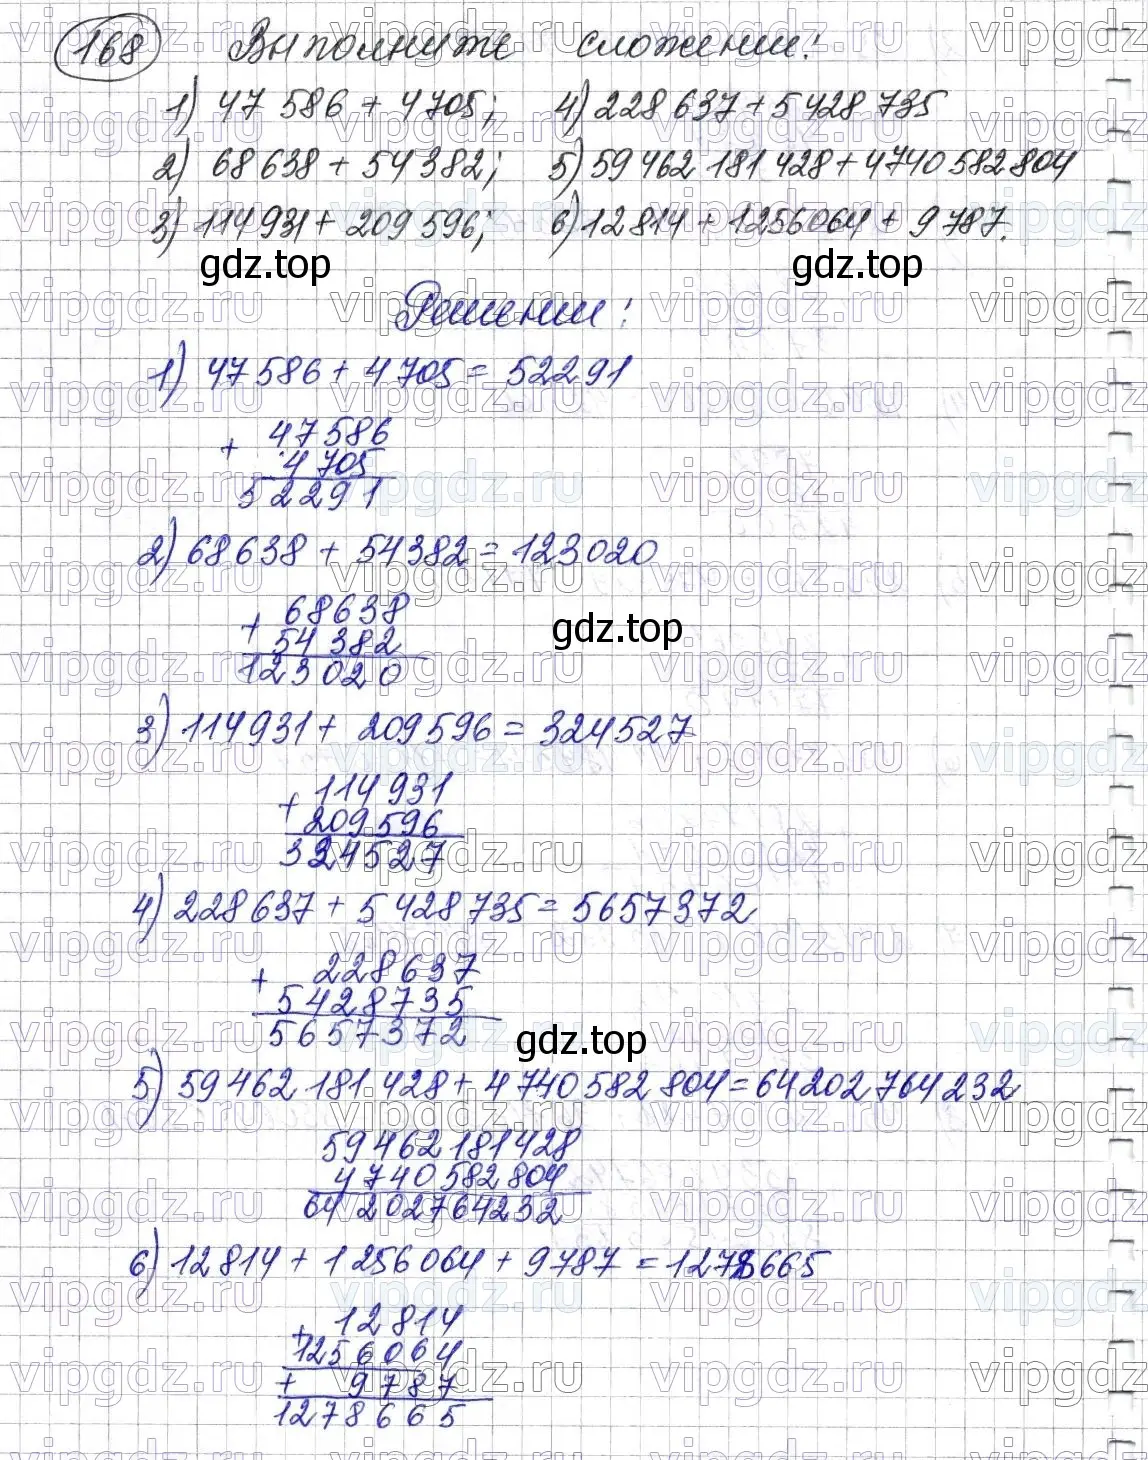 168 Выполните сложение:
1) 47 586 + 4705; 4) 228 637 + 5 428 735
2) 68 638 + 54 382; 5) 59 462 181 428 + 4 740 582 804
3) 114 931 + 209 596; 6) 12 814 + 1 256 064 + 9 787.
gdz.top gdz.top
Решение:
1) 47 586 + 4 705 = 52291
+ 47586
4705
52291
2) 68 638 + 54 382 = 123 020
+ 68638
54382
123020
gdz.top
3) 114 931 + 209 596 = 324527
+ 114931
209596
324527
4) 228 637 + 5 428 735 = 5657372
+ 228637
5428735
5657372
gdz.top
5) 59 462 181 428 + 4 740 582 804 = 64 202 764 232
59462181428
4740582804
64202764232
6) 12 814 + 1 256 064 + 9 787 = 1278665
+ 12814
1256064
+ 9787
1278665